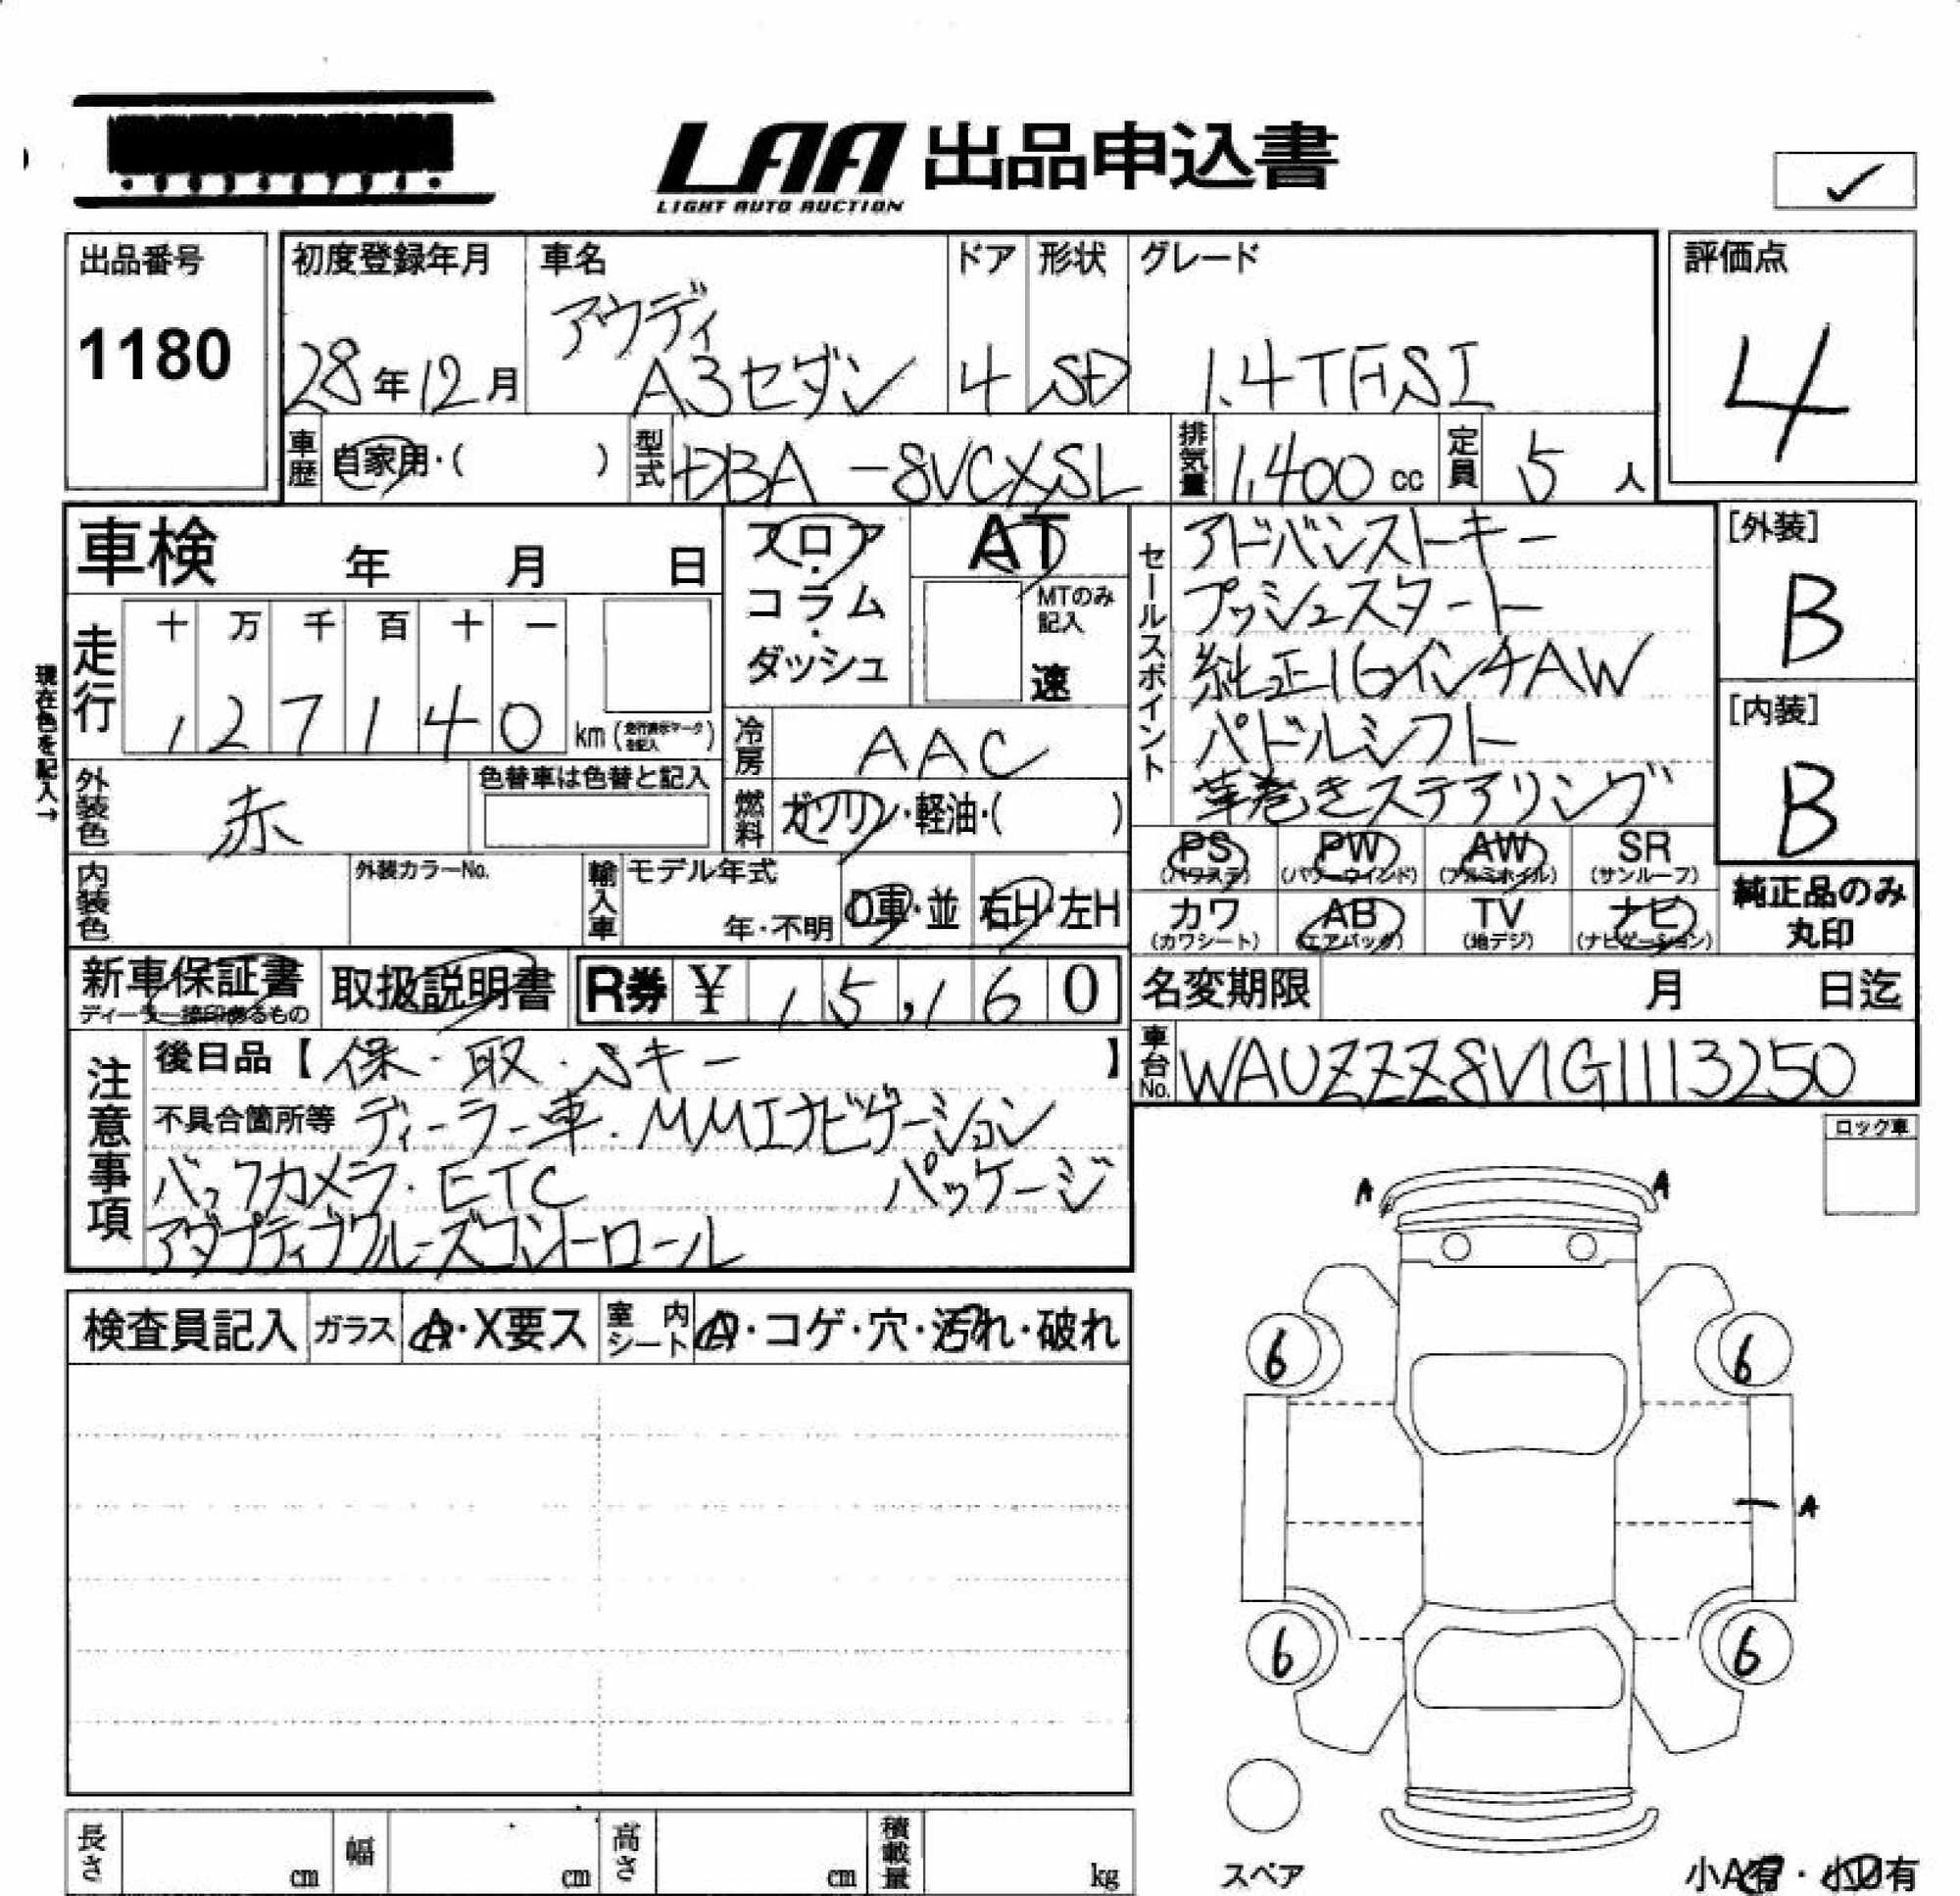 LAA 出品申込書
LIGHT AUTO AUCTION
✓
出品番号
1180
初度登録年月
28年12月
車名
アウディ
A3セダン
ドア
4
形状
SD
グレード
1.4TFSI
評価点
4
車歴
自家用・( )
型式
DBA-8VCXSL
排気量
1,400 cc
定員
5 人
車検 年 月 日
走行
十 万 千 百 十 一
1 2 7 1 4 0
km (走行表示マークを記入)
現在色を記入→
フロア・コラム・ダッシュ
AT
MTのみ記入
速
冷房
AAC
燃料
ガソリン・軽油・( )
セールスポイント
アドバンストキー
プッシュスタート
純正16インチAW
パドルシフト
革巻きステアリング
[外装]
B
[内装]
B
外装色
赤
色替車は色替と記入
内装色
外装カラーNo.
輸入車
モデル年式
年・不明
D車・並
右H・左H
PS (パワステ)
PW (パワーウインド)
AW (アルミホイル)
SR (サンルーフ)
カワ (カワシート)
AB (エアバッグ)
TV (地デジ)
ナビ (ナビゲーション)
純正品のみ
丸印
新車保証書
ディーラー捺印あるもの
取扱説明書
R券 ¥ 15,160
名変期限 月 日迄
車台No.
WAUZZZ8V1G1113250
注意事項
後日品【保・取・Sキー】
不具合箇所等 ディーラー車.MMIナビゲーション
パッケージ
バックカメラ.ETC
アダプティブクルーズコントロール
ロック車
A A
検査員記入
ガラス
A・X要ス
室内シート
A・コゲ・穴・汚れ・破れ
6 6
A
6 6
スペア
小A有・小U有
長さ cm
幅 cm
高さ cm
積載量 kg